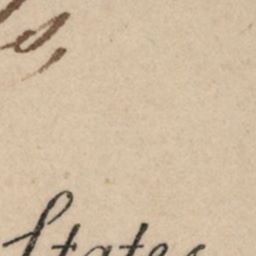 s,
States